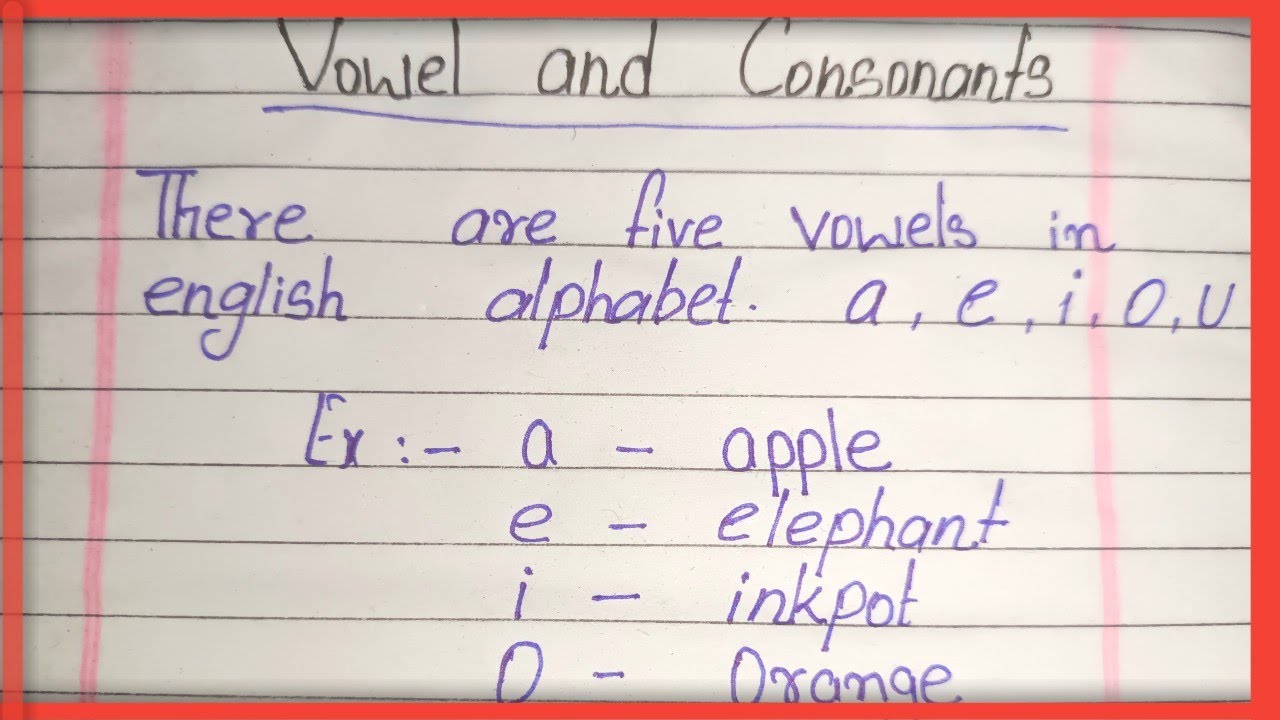 Vowel and Consonants
There are five vowels in
english alphabet. a, e, i, o, u
Ex :- a - apple
e - elephant
i - inkpot
O - Orange